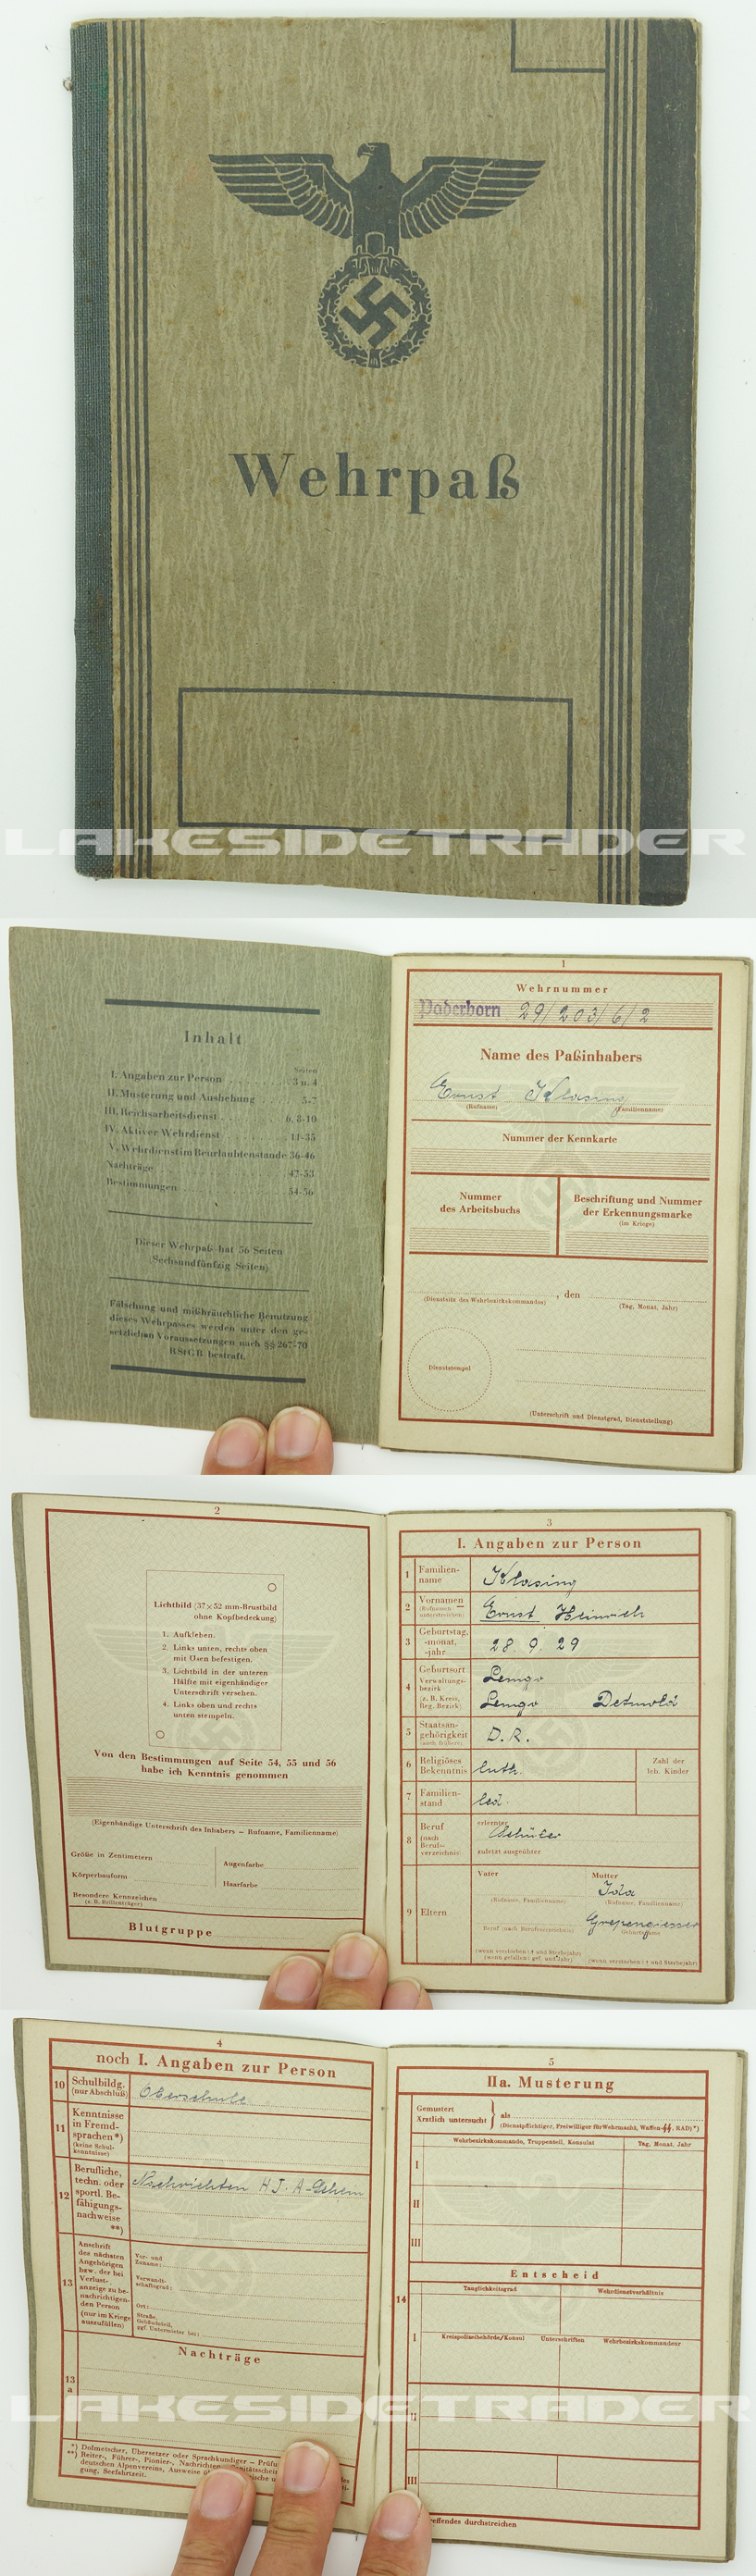 Wehrpaß
LAKESIDETRADER
Inhalt
Seiten
I. Angaben zur Person 3 u. 4
II. Musterung und Aushebung 5-7
III. Reichsarbeitsdienst 6, 8-10
IV. Aktiver Wehrdienst 11-35
V. Wehrdienst im Beurlaubtenstande 36-46
Nachträge 47-53
Bestimmungen 54-56
Dieser Wehrpaß hat 56 Seiten
(Sechsundfünfzig Seiten)
Fälschung und mißbräuchliche Benutzung
dieses Wehrpasses werden unter den ge-
setzlichen Voraussetzungen nach §§ 267-70
RStGB bestraft.
1
Wehrnummer
Paderborn 29/203/6/2
Name des Paßinhabers
Ernst Klasing
(Rufname) (Familienname)
Nummer der Kennkarte
Nummer
des Arbeitsbuchs
Beschriftung und Nummer
der Erkennungsmarke
(im Kriege)
, den
(Dienstsitz des Wehrbezirkskommandos) (Tag, Monat, Jahr)
Dienststempel
(Unterschrift und Dienstgrad, Dienststellung)
2
Lichtbild (37×52 mm-Brustbild
ohne Kopfbedeckung)
1. Aufkleben.
2. Links unten, rechts oben
mit Ösen befestigen.
3. Lichtbild in der unteren
Hälfte mit eigenhändiger
Unterschrift versehen.
4. Links oben und rechts
unten stempeln.
Von den Bestimmungen auf Seite 54, 55 und 56
habe ich Kenntnis genommen
(Eigenhändige Unterschrift des Inhabers – Rufname, Familienname)
Größe in Zentimetern
Augenfarbe
Körperbauform
Haarfarbe
Besondere Kennzeichen
(z. B. Brillenträger)
Blutgruppe
3
I. Angaben zur Person
1 Familien-
name
Klasing
2 Vornamen
(Rufnamen
unterstreichen)
Ernst Heinrich
3 Geburtstag,
-monat,
-jahr
28. 9. 29
4 Geburtsort
Verwaltungs-
bezirk
(z. B. Kreis,
Reg. Bezirk)
Lemgo
Lemgo Detmold
5 Staatsan-
gehörigkeit
(auch frühere)
D. R.
6 Religiöses
Bekenntnis
luth.
Zahl der
leb. Kinder
7 Familien-
stand
led.
8 Beruf
(nach
Berufs-
verzeichnis)
erlernter
Schüler
zuletzt ausgeübter
9 Eltern
Vater Mutter
Ida
(Rufname, Familienname) (Rufname, Familienname)
Grepengiesser
Geburtsname
Beruf (nach Berufsverzeichnis)
(wenn verstorben: † und Sterbejahr)
(wenn gefallen: gef. und Jahr)
(wenn verstorben: † und Sterbejahr)
4
noch I. Angaben zur Person
10 Schulbildg.
(nur Abschluß)
Oberschule
11 Kenntnisse
in Fremd-
sprachen*)
(keine Schul-
kenntnisse)
12 Berufliche,
techn. oder
sportl. Be-
fähigungs-
nachweise
**)
Nachrichten HJ. A-Schein
13 Anschrift
des nächsten
Angehörigen
bzw. der bei
Verlust-
anzeige zu be-
nachrichtigen-
den Person
(nur im Kriege
auszufüllen)
Vor- und
Zuname:
Verwandt-
schaftsgrad:
Ort:
Straße,
Gebäudeteil,
ggf. Untermieter bei:
Nachträge
13
a
*) Dolmetscher, Übersetzer oder Sprachkundiger – Prüfu
**) Reiter-, Führer-, Pionier-, Nachrichten
deutschen Alpenvereins, Ausweise
gung, Seefahrtzeit.
5
IIa. Musterung
Gemustert
Ärztlich untersucht
als
(Dienstpflichtiger, Freiwilliger für Wehrmacht, Waffen-SS, RAD)*)
Wehrbezirkskommando, Truppenteil, Konsulat Tag, Monat, Jahr
I
II
III
Entscheid
14
Tauglichkeitsgrad Wehrdienstverhältnis
I
Kreispolizeibehörde/Konsul Unterschriften Wehrbezirkskommandeur
II
III
effendes durchstreichen
LAKESIDETRADER